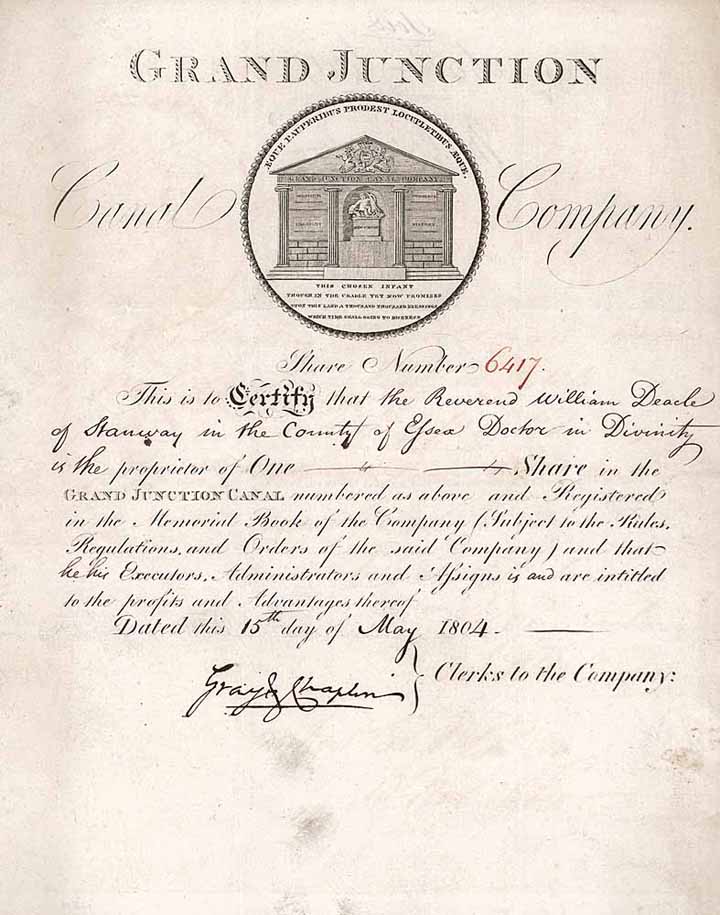 GRAND JUNCTION
ÆQUE PAUPERIBUS PRODEST LOCUPLETIBUS ÆQUE.
GRAND JUNCTION CANAL COMPANY
Canal Company.
THIS CHOSEN INFANT
THOUGH IN THE CRADLE YET NOW PROMISES
UPON THIS LAND A THOUSAND THOUSAND BLESSINGS
WHICH TIME SHALL BRING TO RIPENESS
Share Number 6417.
This is to Certify that the Reverend William Deacle
of Stanway in the County of Essex Doctor in Divinity
is the proprietor of One Share in the
GRAND JUNCTION CANAL numbered as above and Registered
in the Memorial Book of the Company (Subject to the Rules,
Regulations, and Orders of the said Company) and that
he his Executors, Administrators and Assigns is and are intitled
to the profits and Advantages thereof
Dated this 15th day of May 1804.
Gray & Chaplin } Clerks to the Company: